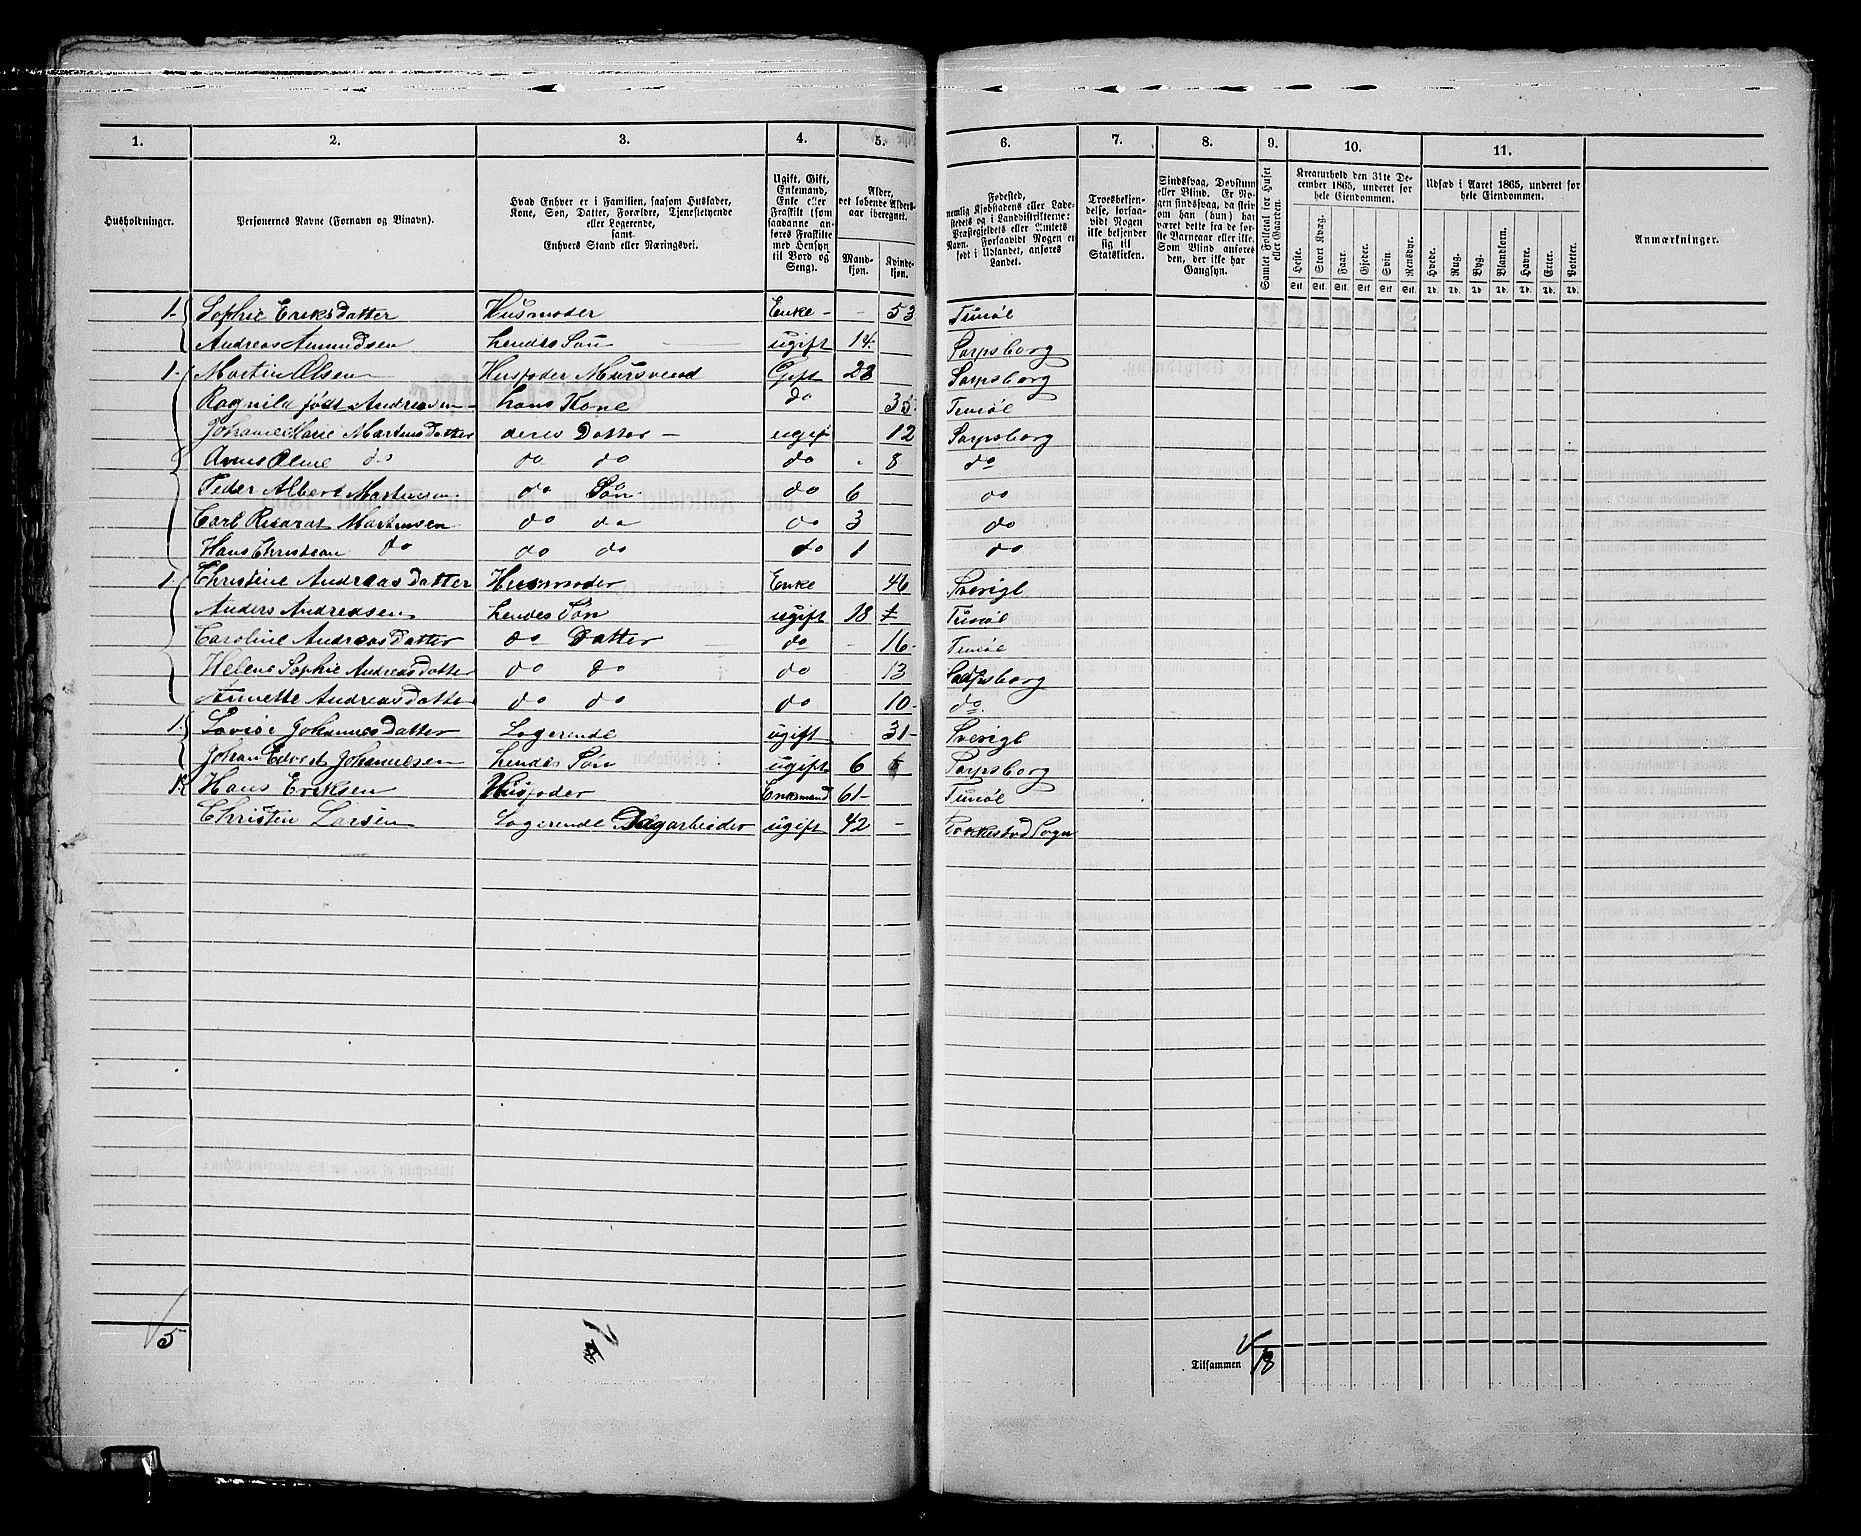 1. 2. 3. 4. 5. 6. 7. 8. 9. 10. 11.
Husholdninger.
Personernes Navne (Fornavn og Binavn).
Hvad Enhver er i Familien, saasom Husfader, Kone, Søn, Datter, Forældre, Tjenestetyende eller Logerende, samt Enhvers Stand eller Næringsvei.
Ugift, Gift, Enkemand, Enke eller Fraskilt (som saadanne anføres Fraskilte med Hensyn til Bord og Seng).
Alder, det løbende Alders-aar iberegnet.
Mand-kjøn. Kvinde-kjøn.
Fødested, nemlig Kjøbstadens eller Ladestedets og i Landdistrikterne: Præstegjeldets eller Amtets Navn. Forsaavidt Nogen er født i Udlandet, anføres Landet.
Troesbekjendelse, forsaavidt Nogen ikke bekjender sig til Statskirken.
Sindssvag, Døvstum eller Blind. Er Nogen sindssvag, da skriv om han (hun) har været dette fra de første Barneaar eller ikke. Som Blind anføres den, der ikke har Gangsyn.
Samlet Folketal for Huset eller Gaarden.
Kreaturhold den 31te December 1865, underet for hele Eiendommen.
Heste. Stort Kvæg. Faar. Gjeder. Svin. Rensdyr.
Stk. Stk. Stk. Stk. Stk. Stk.
Udsæd i Aaret 1865, underet for hele Eiendommen.
Hvede. Rug. Byg. Blandkorn. Havre. Erter. Poteter.
Td. Td. Td. Td. Td. Td. Td.
Anmærkninger.
1- Sophie Eriksdatter Husmoder Enke - - 53 Tunøl
Andreas Amundsen hendes Søn ugift 14 Sarpsborg
1- Martin Olsen Husfader Mursvend Gift 28 Sarpsborg
Ragnild født Andreasen hans Kone do 35 Tunøl
Johanne Marie Martinsdatter deres Datter - ugift 12 Sarpsborg
Oline do do do do 8 do
Peder Albert Martinsen do Søn do 6 do
Carl Martinsen do do do 3 do
Hans Christian do do do do 1 do
1 Christine Andreasdatter Husmoder Enke 46 Sverige
Anders Andreasen hendes Søn ugift 18 Tunøl
Caroline Andreasdatter do Datter do - 16- Tunøl
Helene Sophie Andreasdatter do do do 13 Sarpsborg
Annette Andreasdatter do do do 10- do
1 Lovise Johannesdatter Logerende ugift 31- Sverige
Johan Johannesen hendes Søn ugift 6 Sarpsborg
1 Hans Eriksen Husfader Enkemand 61- Tunøl
Christen Larsen Logerende Dagarbeider ugift 42 - Rakkestad Sogn
5
Tilsammen 18